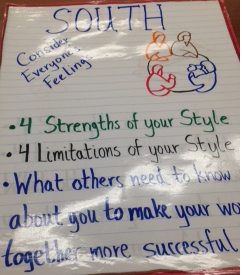 SOUTH
Consider
Everyone's
Feelings
• 4 Strengths of your Style
• 4 Limitations of your Style
• What others need to know
about you to make your wo
together more successful